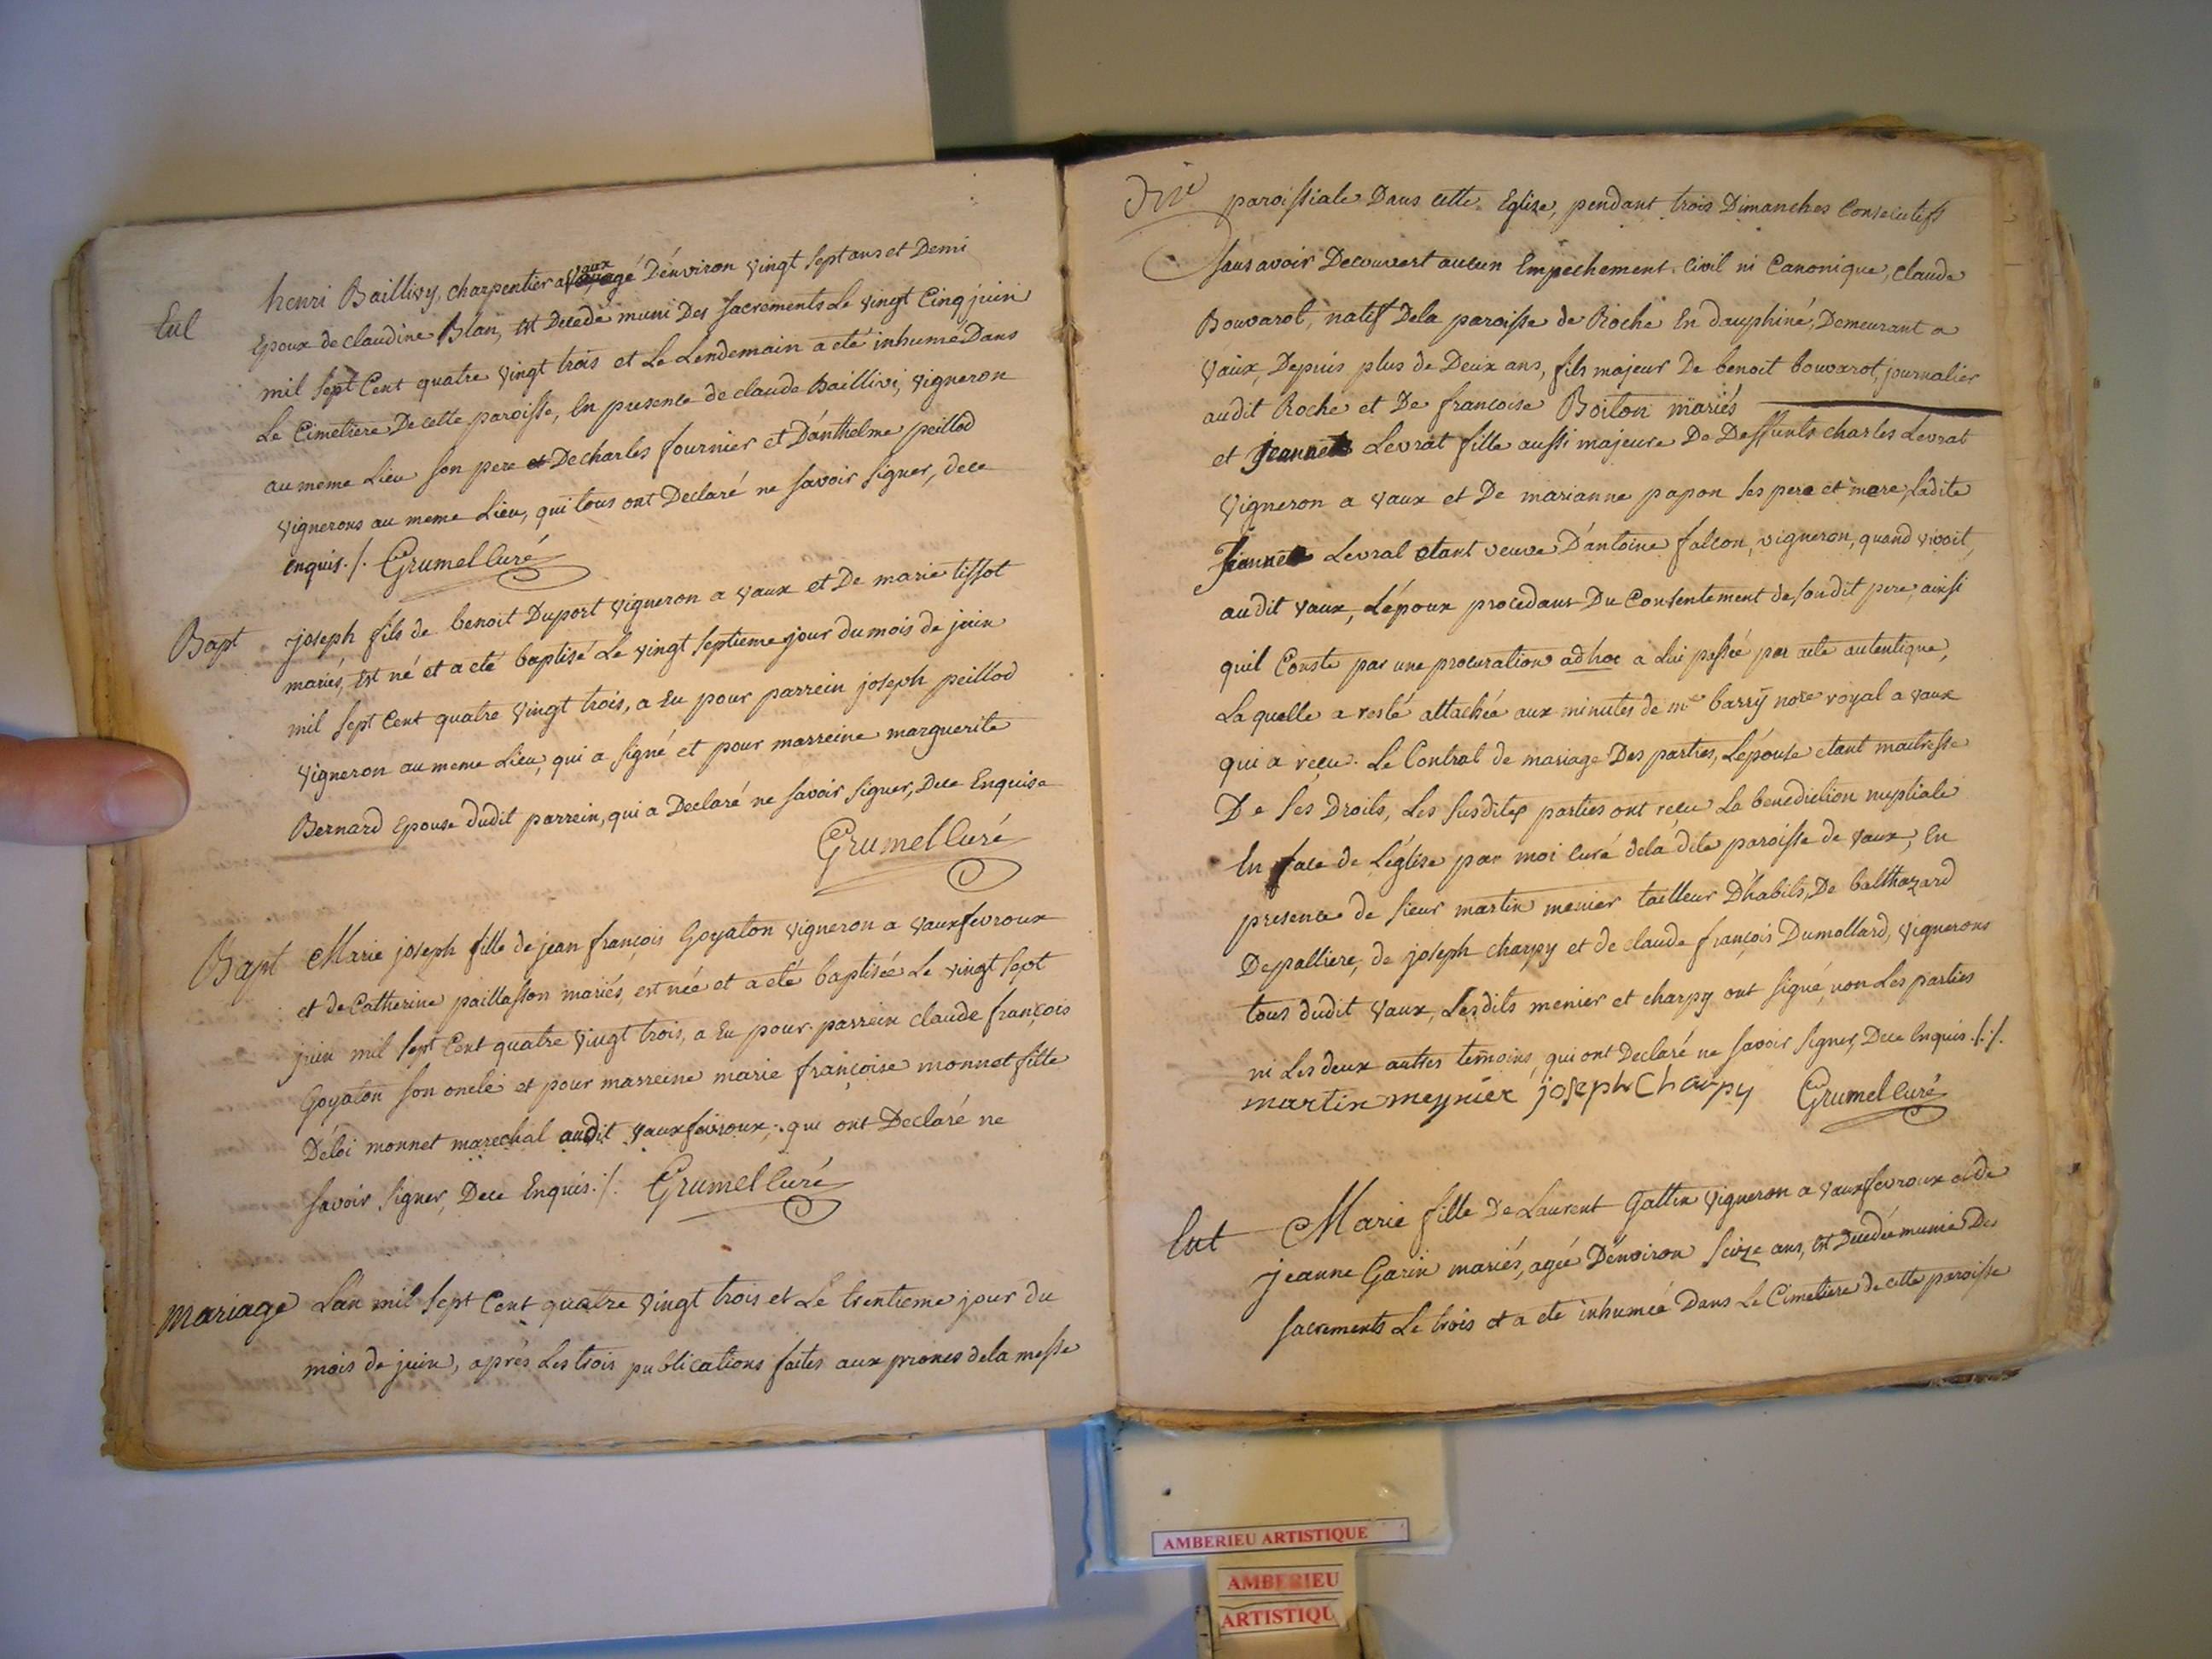 Eut
henri Baillivy, charpentier a Vaux agé D'environ vingt sept ans et Demi
Epoux de claudine Blan, Est Decedé muni Des sacrements Le vingt Cinq juin
mil sept Cent quatre vingt trois et Le Lendemain a eté inhumé Dans
Le Cimetiere De cette paroisse, En presence de claude Baillivi, vigneron
au meme Lieu son pere et De charles fournier et D'anthelme peillod
vignerons au meme Lieu, qui tous ont Declaré ne savoir signer, de ce
enquis ./. Grumel Curé
Bapt
joseph fils de benoit Duport vigneron a vaux et De marie tissot
mariés, Est né et a eté baptisé Le vingt septieme jour du mois de juin
mil sept Cent quatre vingt trois, a Eu pour parrein joseph peillod
vigneron au meme Lieu, qui a signé et pour marreine marguerite
Bernard Epouse dudit parrein, qui a Declaré ne savoir signer, De ce Enquise
Grumel Curé
Bapt
Marie joseph fille de jean françois Goyaton vigneron a vauxfevroux
et de Catherine paillasson mariés, est née et a eté baptisée Le vingt sept
juin mil sept Cent quatre vingt trois, a Eu pour parrein claude françois
Goyaton son oncle et pour marreine marie françoise monnet fille
D'eloi monnet marechal audit vauxfevroux, qui ont Declaré ne
savoir signer, De ce Enquis ./. Grumel Curé
Mariage
L'an mil sept Cent quatre vingt trois et Le trentieme jour du
mois de juin, après Les trois publications faites aux prones de la messe
paroissiale Dans cette Eglise, pendant trois Dimanches Consecutifs
sans avoir Decouvert aucun Empechement civil ni Canonique, claude
Bouvarot, natif De la paroisse de Roche En dauphiné, Demeurant a
vaux, Depuis plus de Deux ans, fils majeur De benoit bouvarot, journalier
audit Roche et De françoise Boiton mariés
et Jeanne Levrat fille aussi majeure De Deffunts charles Levrat
vigneron a vaux et De marianne papon ses pere et mere, Ladite
Jeanne Levrat etant veuve D'antoine falcon, vigneron, quand vivoit,
audit vaux, L'époux procedant Du Consentement de sondit pere, ainsi
quil Conste par une procuration ad hoc a Lui passée par acte autentique,
La quelle a resté attachée aux minutes de me barry nore royal a vaux
qui a reçu Le Contrat de mariage Des parties, L'épouse etant maitresse
De ses Droits, Les susdites parties ont reçu La benediction nuptiale
En face de L'église par moi Curé de la dite paroisse de vaux, En
presence de sieur martin menier tailleur D'habits, De balthazard
Depalliere, de joseph charpy et de claude françois Dumollard, vignerons
tous dudit vaux, Lesdits menier et charpy ont signé, non Les parties
ni Les deux autres temoins, qui ont Declaré ne savoir signer, De ce Enquis ./:/.
martin meynier joseph Charpy Grumel Curé
Ent
Marie fille de Laurent Gattin vigneron a vauxfevroux et de
jeanne Garin mariés, agée D'environ seize ans, Est Decedée munie Des
sacrements Le trois et a eté inhumée Dans Le Cimetiere de cette paroisse
AMBERIEU ARTISTIQUE
AMBERIEU
ARTISTIQU